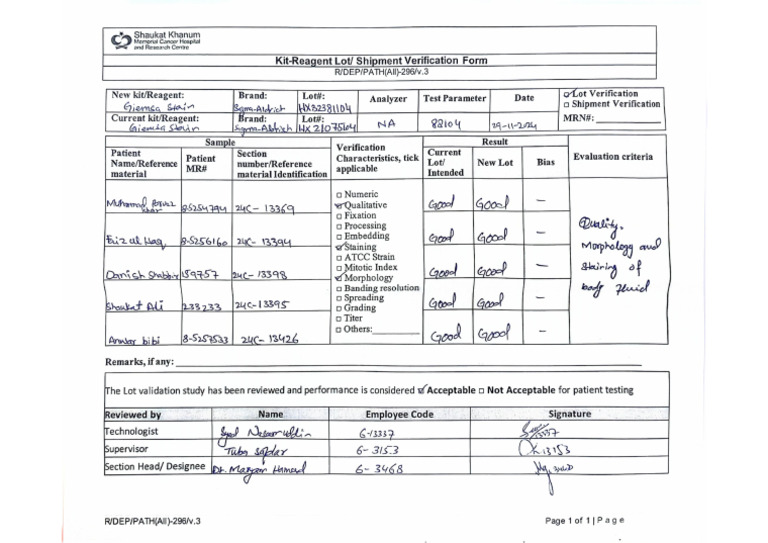 Shaukat Khanum
Memorial Cancer Hospital
and Research Centre
Kit-Reagent Lot/ Shipment Verification Form
R/DEP/PATH(All)-296/v.3
New kit/Reagent: Giemsa Stain Brand: Sigma-Aldrich Lot#: HX32381104 Analyzer Test Parameter Date ☑ Lot Verification
☐ Shipment Verification
Current kit/Reagent: Giemsa Stain Brand: Sigm-Aldrich Lot#: HX21075104 NA 88104 29-11-2024 MRN#: ____________
Sample Verification Characteristics, tick applicable Result Evaluation criteria
Patient Name/Reference material Patient MR# Section number/Reference material Identification Current Lot/ Intended New Lot Bias
Muhammad 8-5254794 24C-13369 Good Good —
Faiz ul Haq 8-5256160 24C-13394 Good Good —
Danish Shabbir 159757 24C-13398 Good Good —
Shaukat Ali 233233 24C-13395 Good Good —
Anwar bibi 8-5257533 24C-13426 Good Good —
☐ Numeric
☑ Qualitative
☐ Fixation
☐ Processing
☐ Embedding
☑ Staining
☐ ATCC Strain
☐ Mitotic Index
☑ Morphology
☐ Banding resolution
☐ Spreading
☐ Grading
☐ Titer
☐ Others:__________
Quality.
Morphology and
staining of
body fluid
Remarks, if any:
The Lot validation study has been reviewed and performance is considered ☑ Acceptable ☐ Not Acceptable for patient testing
Reviewed by Name Employee Code Signature
Technologist Syed 6-13337 13337
Supervisor Tuba Safdar 6-3153
Section Head/ Designee Dr. Maryam Hameed 6-3468
R/DEP/PATH(All)-296/v.3 Page 1 of 1 | Page